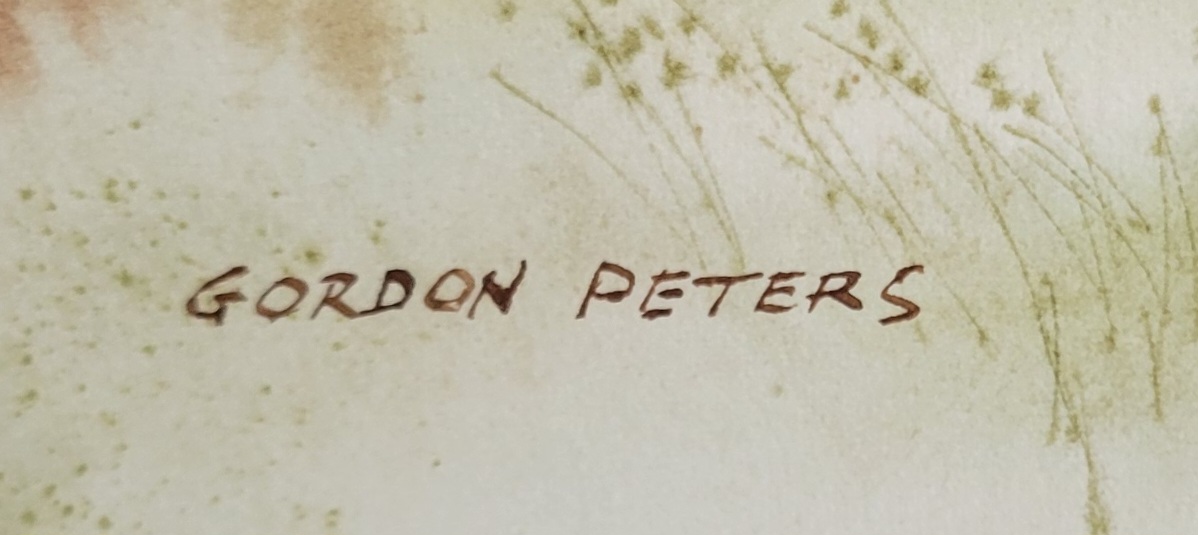 GORDON PETERS